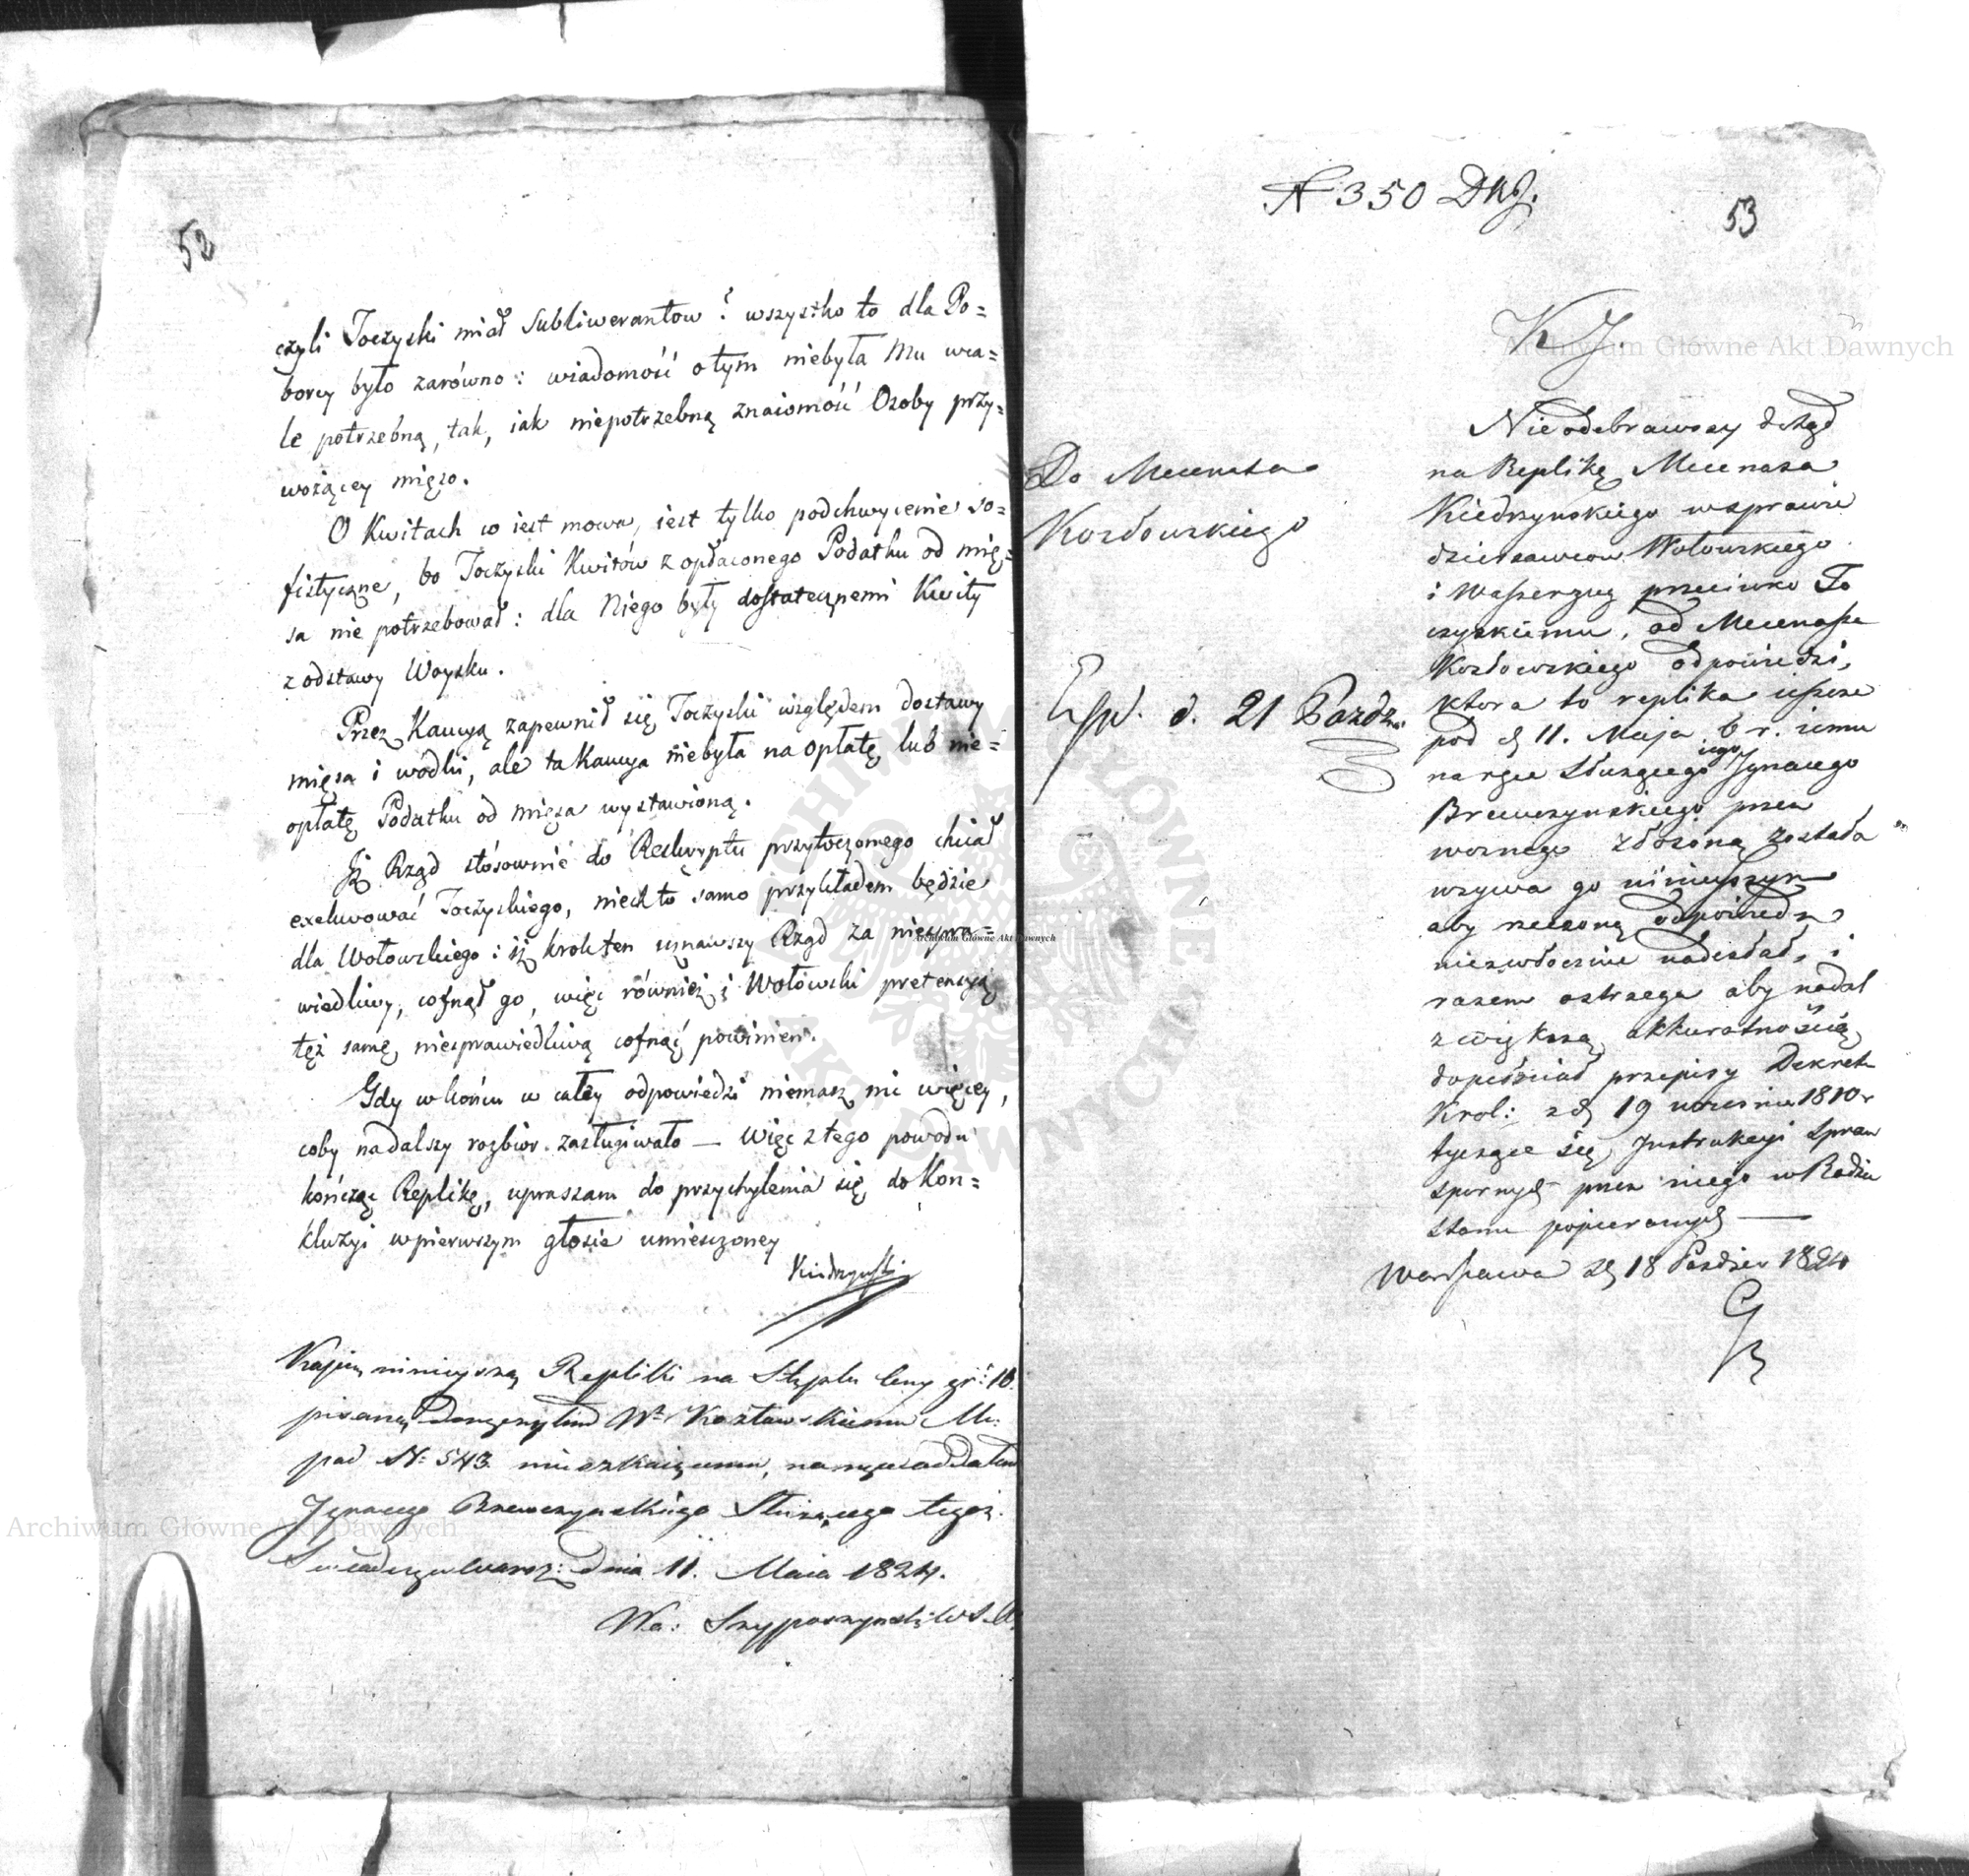 52
czyli Toczyski miał Subliwerantow? wszystko to dla Po=
borcy było zarówno: wiadomość o tym niebyła Mu wca=
le potrzebną, tak, iak niepotrzebną znaiomość Osoby przy=
wożącey mięso.
O Kwitach co iest mowa, iest tylko podchwycenie so=
fistyczne, bo Toczyski Kwitów z opłaconego Podatku od mię=
sa nie potrzebował: dla Niego były dostatecznemi Kwity
z odstawy Woysku.
Przez Kaucyą zapewnił się Toczyski względem dostawy
mięsa i wódki, ale ta Kaucya niebyła na opłatę lub nie=
opłatę Podatku od mięsa wystawioną.
Iż Rząd stósownie do Reskryptu przytoczonego chciał
exekwować Toczyskiego, niech to samo przykładem będzie
dla Wołowskiego: iż krok ten uznawszy Rząd za niespra=
wiedliwy, cofnął go, więc również i Wołowski pretensyą
też samę niesprawiedliwą cofnąć powinien.
Gdy w końcu w całey odpowiedzi niemasz nic więcey,
coby na dalszy rozbiór zasługiwało — Więc z tego powodu
kończąc Replikę, upraszam do przychylenia się do Kon=
kluzyi w pierwszym głosie umieszczoney
Kiedrzyński
Kopią ninieyszą Repliki na Stęplu Ceny gr: 10.
pisaną Doręczyłem Wu Kozłowskiemu Me:
pod N: 543 mieszkaiącemu, na ręce oddałem
Ignacego Brzewczynskiego Służącego tegoż.
Swiadczę w Warsz: Dnia 11. Maia 1824.
Wa:
N 350 DKJ.
53
K J.
Do Mecenasa
Kozłowskiego
Exp. d. 21 Paźdz:
Nieodebrawszy dotąd
na Replikę Mecenasa
Kiedrzyńskiego w sprawie
dzierżawców Wołowskiego
i Wasserzug przeciwko To
czyskiemu, od Mecenasa
Kozłowskiego odpowiedzi,
ktora to replika ieszcze
pod d 11. Maja b. r. iemu
na ręce Służącego iego Ignacego
Brzewczynskiego przez
woznego złożoną została
wzywa go ninieyszym
aby rzeczoną odpowiedz
niezwłocznie nadesłał, i
razem ostrzega aby nadal
z większą akkuratnością
dopełniał przepisy Dekretu
Krol: z d 19 Września 1810 r
tyczące się Instrukcyi Spraw
spornych przez niego w Radzie
Stanu popieranych —
Warszawa d 18 Paździer 1824